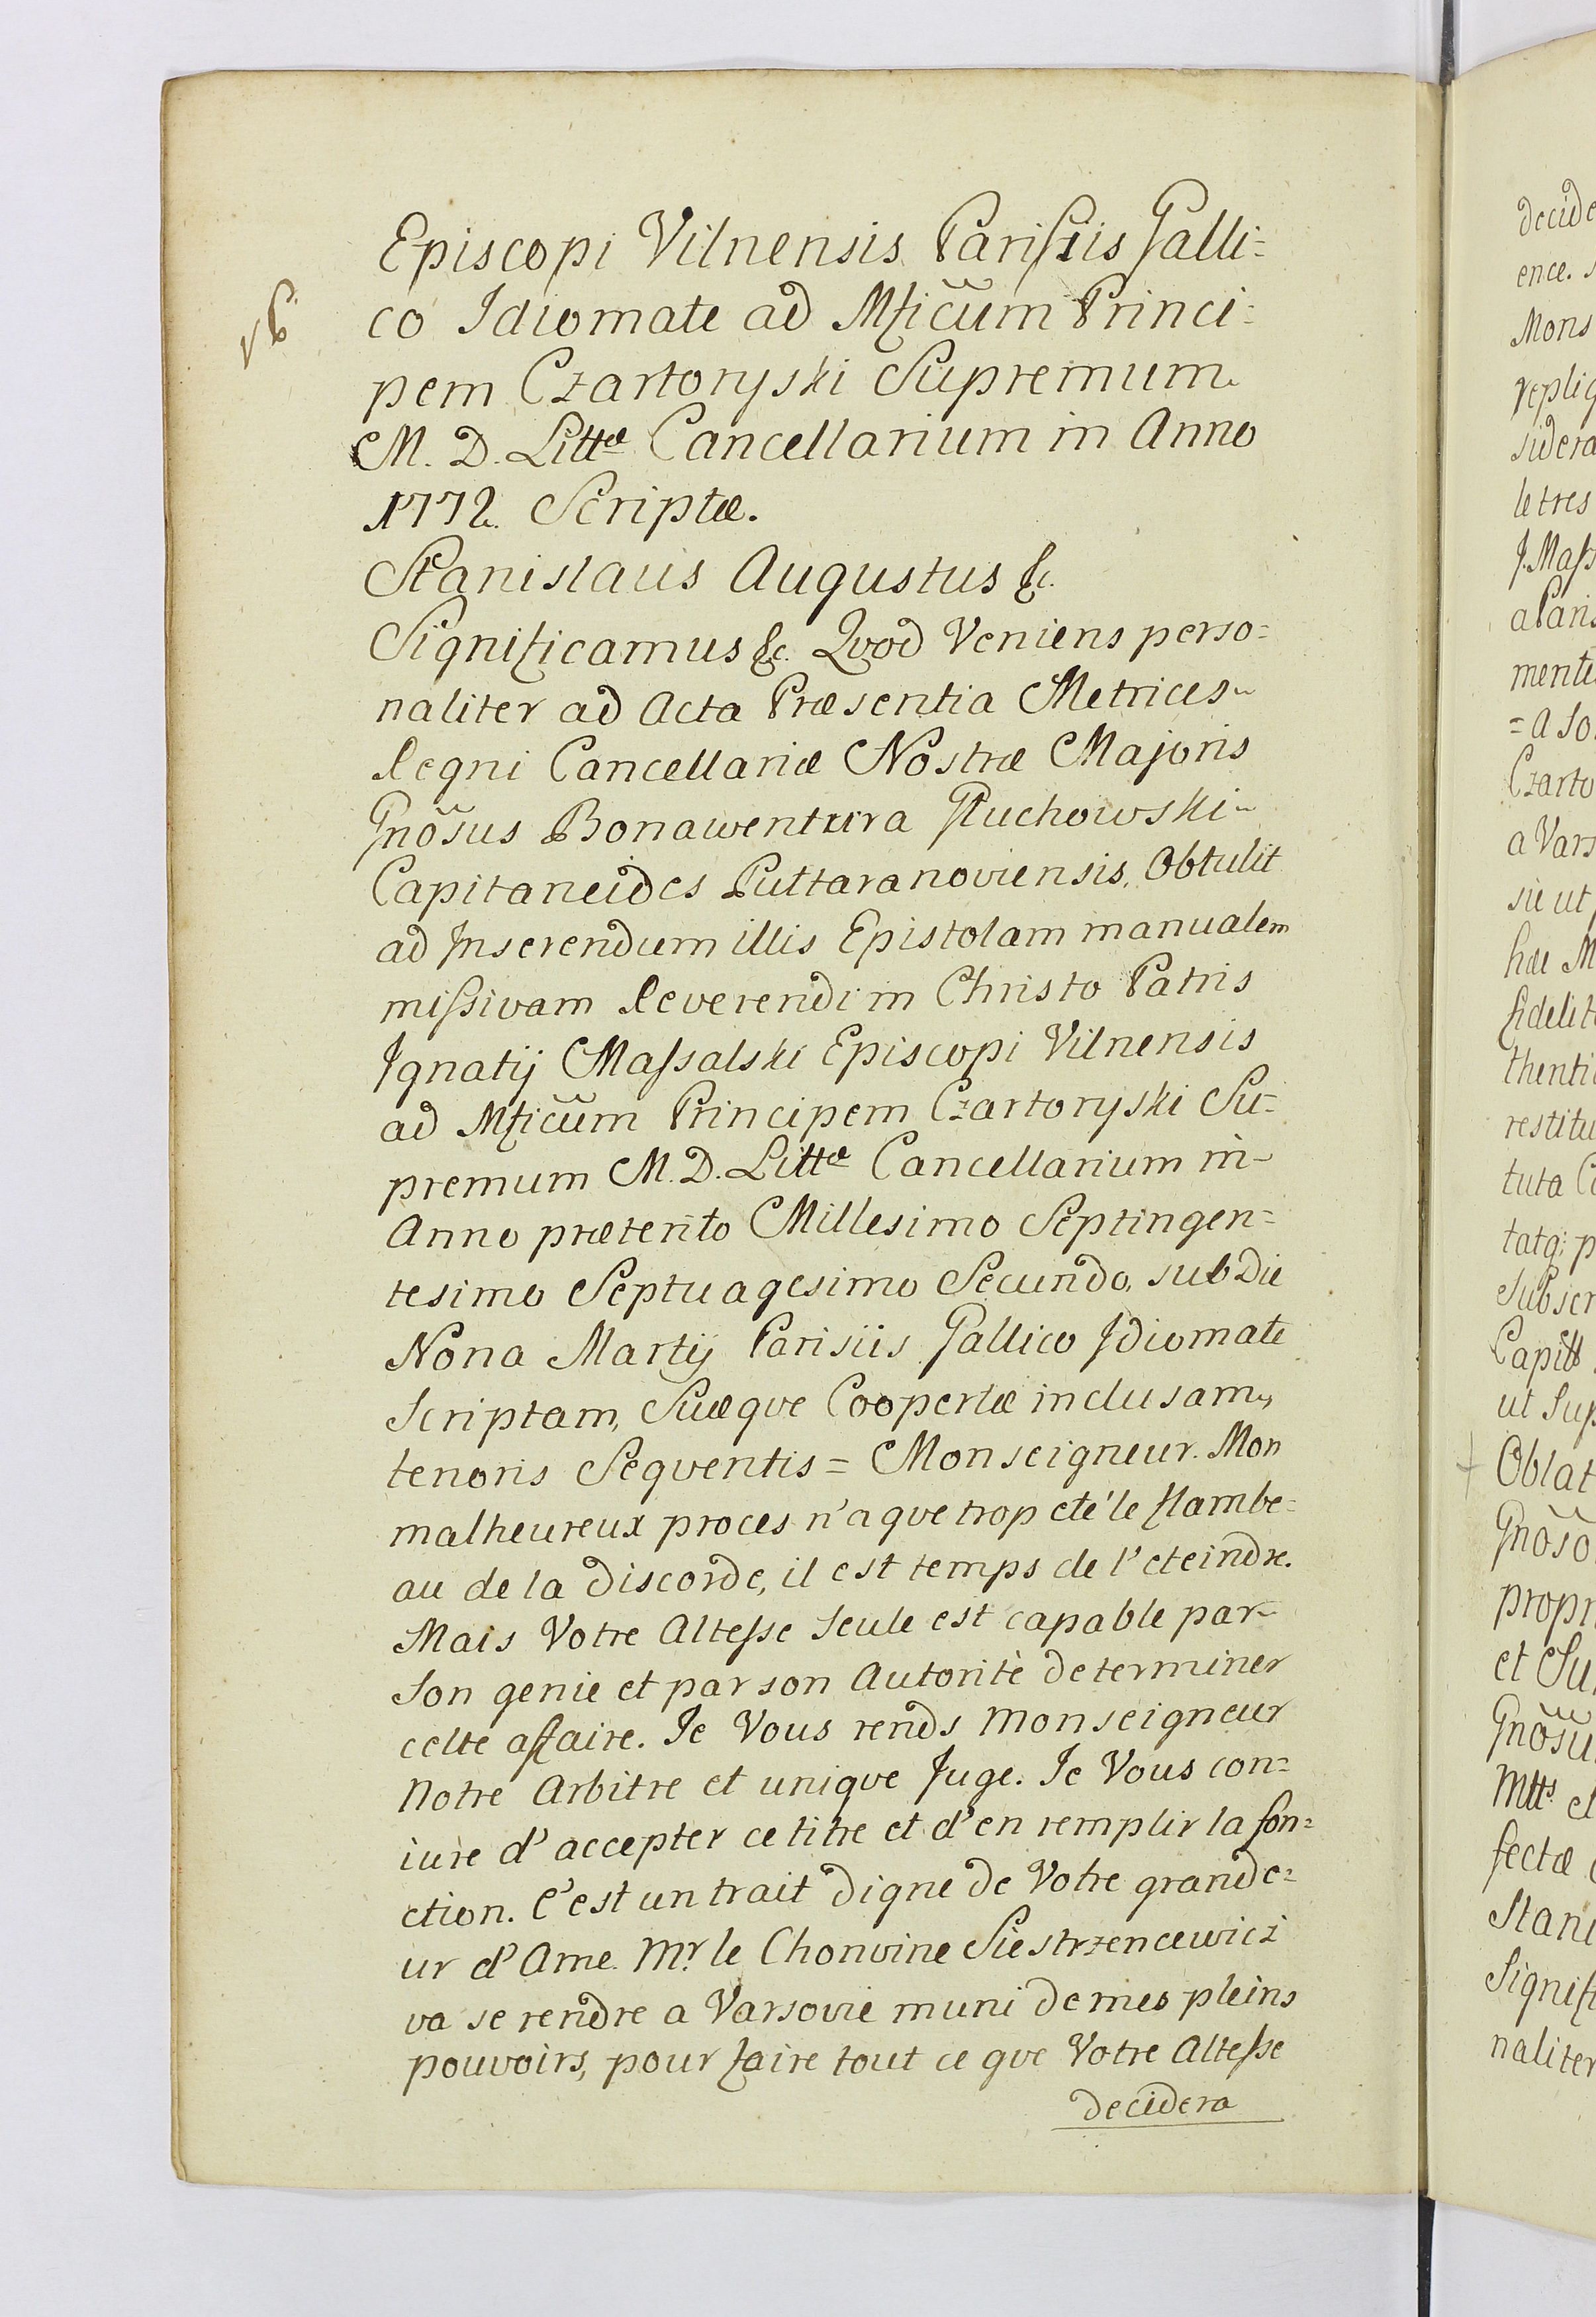 Episcopi Vilnensis Parisiis Galli=
co Idiomate ad Mficum Princi=
pem Czartoryski Supremum
M. D. Littæ Cancellarium in Anno
1772. Scriptæ.
Stanislaus Augustus &c.
Significamus &c. Qvod Veniens perso=
naliter ad Acta Præsentia Metrices
Regni Cancellariæ Nostræ Majoris
Gnõsus Bonawentura Głuchowski
Capitaneides Puttaranoviensis, Obtulit
ad Inserendum illis Epistolam manualem
missivam Reverendi in Christo Patris
Ignatij Massalski Episcopi Vilnensis
ad Mficum Principem Czartoryski Su=
premum M. D. Littæ Cancellarium in
Anno præterito Millesimo Septingen=
tesimo Septuagesimo Secundo, sub Die
Nona Martij Parisiis Gallico Idiomate
Scriptam, Suæqve Coopertæ inclusam,
tenoris Seqventis = Monseigneur. Mon
malheureux proces n'a qve trop eté le flambe=
au de la discorde, il est temps de l'eteindre.
Mais Votre Altesse Seule est capable par
Son genie et par son Autorité de terminer
cette affaire. Je Vous rends Monseigneur
Notre Arbitre et uniqve Juge. Je Vous con=
iure d'accepter ce titre et d'en remplir la fon=
ction. C'est un trait digne de Votre grande=
ur d'Ame. Mr. le Chonoine Siestrzencewicz
va se rendre a Varsovie muni de mes pleins
pouvoirs, pour faire tout ce qve Votre Altesse
decidera
decide
ence.
Mons
repliq
sidera
le tres
J. Mass
a Paris
mente
= a So
Czarto
a Vars
sie ut
hæ M
fidelit
thenti
restitu
tuta C
tatq; p
Subscr
Capitt
ut Sup
Oblat
Gnõso
propr
et Su
Gnõsu
Mtts et
fectæ
Stani
Signifi
naliter